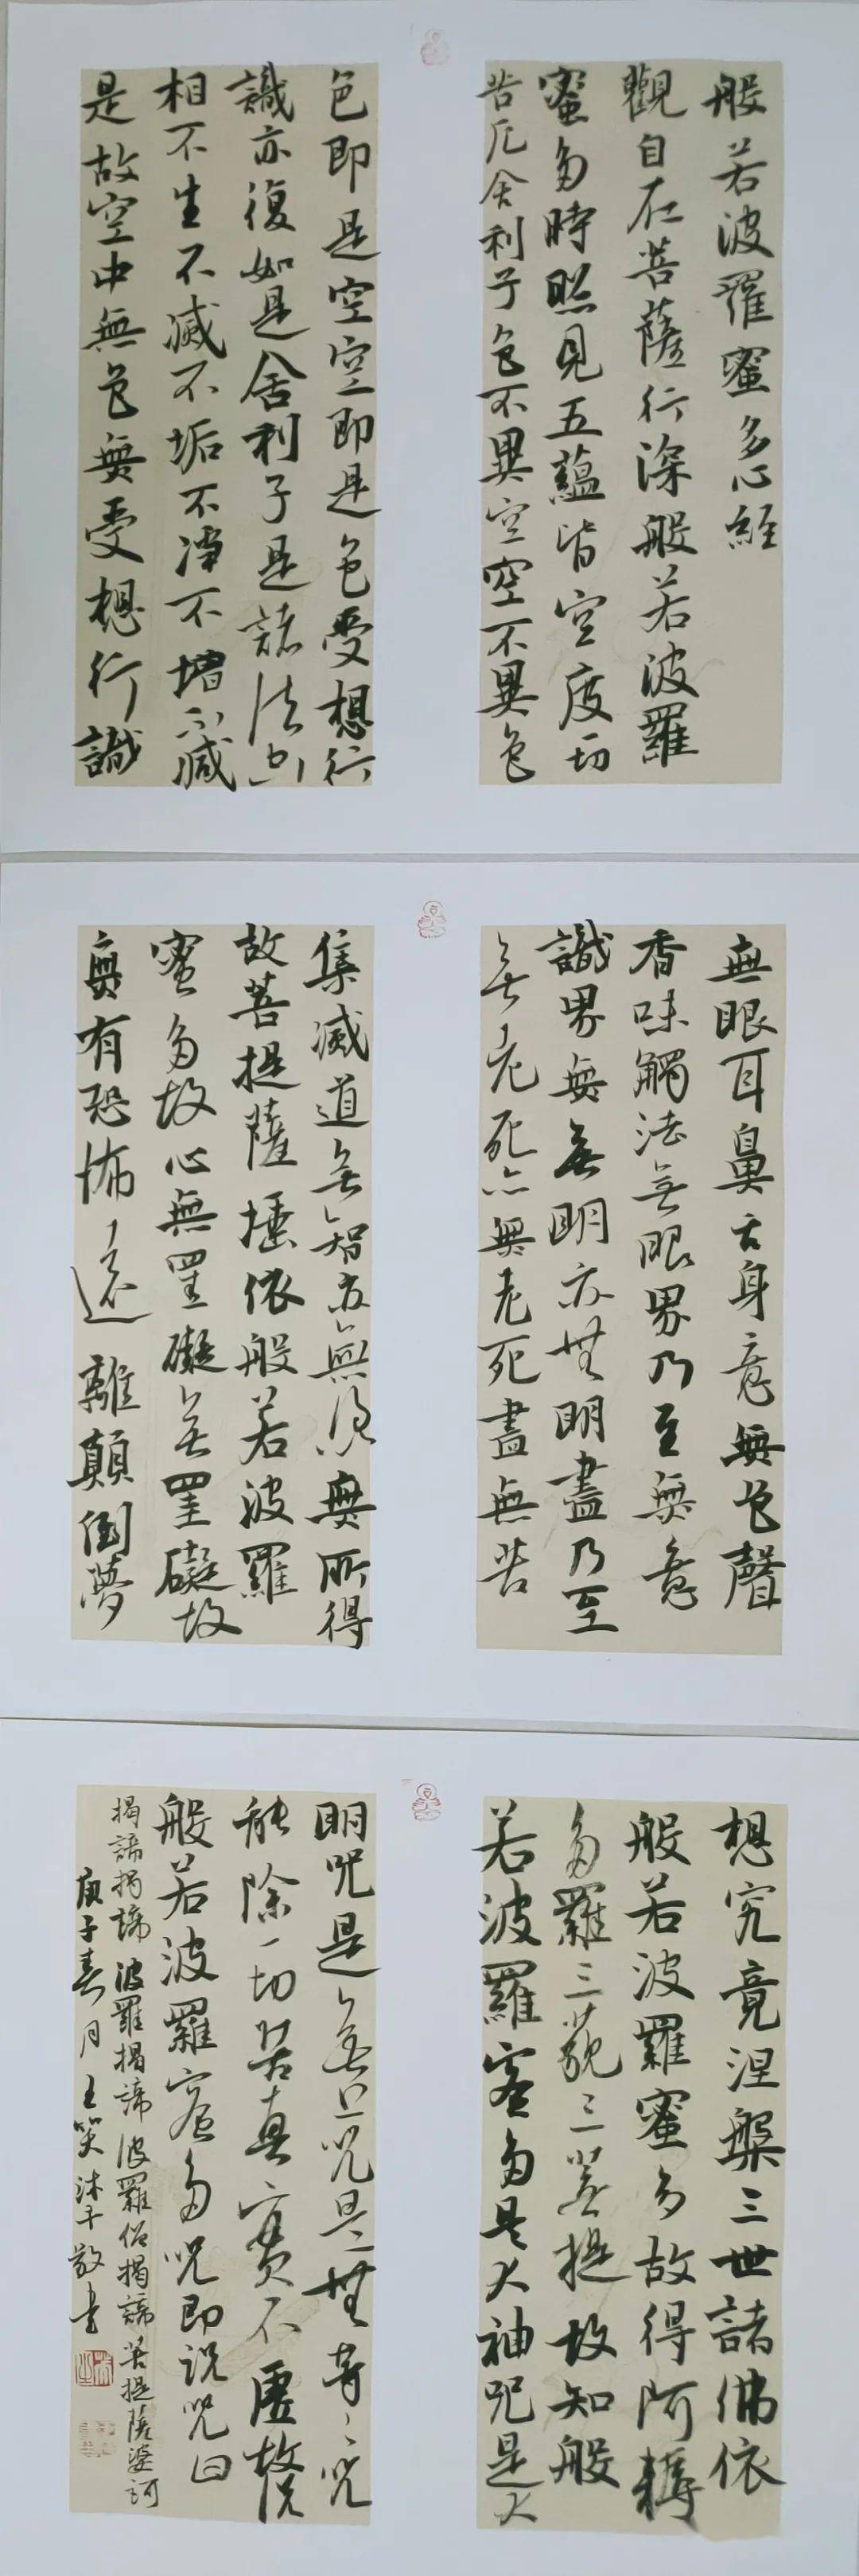 般若波羅蜜多心經
觀自在菩薩行深般若波羅
蜜多時照見五蘊皆空度一切
苦厄舍利子色不異空空不異色
色即是空空即是色受想行
識亦復如是舍利子是諸法空
相不生不滅不垢不淨不增不減
是故空中無色無受想行識
無眼耳鼻舌身意無色聲
香味觸法無眼界乃至無意
識界無無明亦無明盡乃至
無老死亦無老死盡無苦
集滅道無智亦無得無所得
故菩提薩埵依般若波羅
蜜多故心無罣礙無罣礙故
無有恐怖遠離顛倒夢
想究竟涅槃三世諸佛依
般若波羅蜜多故得阿耨
多羅三藐三菩提故知般
若波羅蜜多是大神咒是大
明咒是無上咒是無等々咒
能除一切苦真實不虛故說
般若波羅蜜多咒即說咒曰
揭諦揭諦波羅揭諦波羅僧揭諦菩提薩婆訶
庚子春月王笑沐手敬書